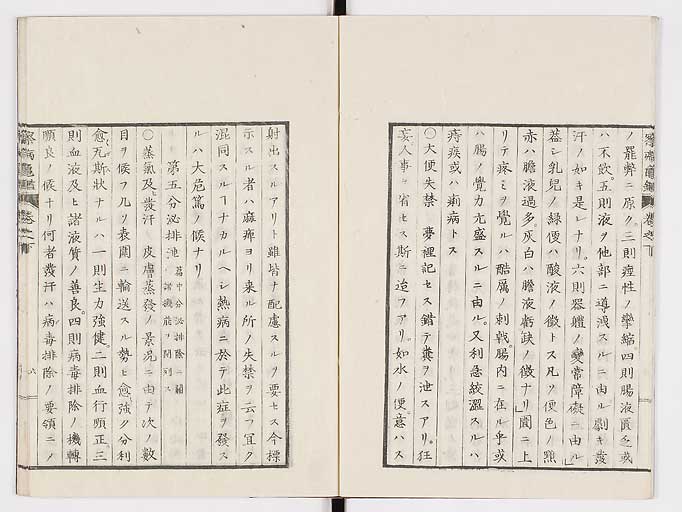 ノ罷弊ニ原ク。三則痙性ノ攣縮。四則腸液匱乏或
ハ不飲。五則液ヲ他部ニ導洩スルニ由ル。劇キ發
汗ノ如キ是レナリ。六則器體ノ變常障礙ニ由ル」
蓋シ乳児ノ緑便ハ酸液ノ徴トス凡ソ便色ノ黒
赤ハ膽液過多。灰白ハ膽液虧缺ノ徴ナリ」圊ニ上
リテ疼ミヲ覺ルハ酷厲ノ刺戟。腸内ニ在ル乎或
ハ腸ノ覺力亢盛スルニ由ル。又利急絞澀スルハ
痔疾或ハ痢病トス
〇大便失禁 夢裡記セス錯テ糞ヲ泄スアリ。狂
妄人事ヲ省セス斯ニ迨フアリ。如水ノ便。意ハス
射出スルアリト雖皆ナ配慮スルヲ要セス今標
示スル者ハ麻痺ヨリ来ル所ノ失禁ヲ云フ宜ク
混同スルヿナカルヘシ熱病ニ於テ此症ヲ發ス
ルハ大危篤ノ候ナリ
第五分泌排泄
〇蒸氣及ヒ發汗 皮膚蒸發ノ景况ニ由テ次ノ數
目ヲ候フ凡ソ表圊ニ輸送スル勢ヒ愈強ク分利
愈瓦斯狀ナルハ一則生力強健。二則血行順正。三
則血液及ヒ諸液質ノ善良。四則病毒排除ノ機轉
順良ノ候ナリ何者發汗ハ病毒排除ノ要領ニノ
察病亀鑑 卷之下
六